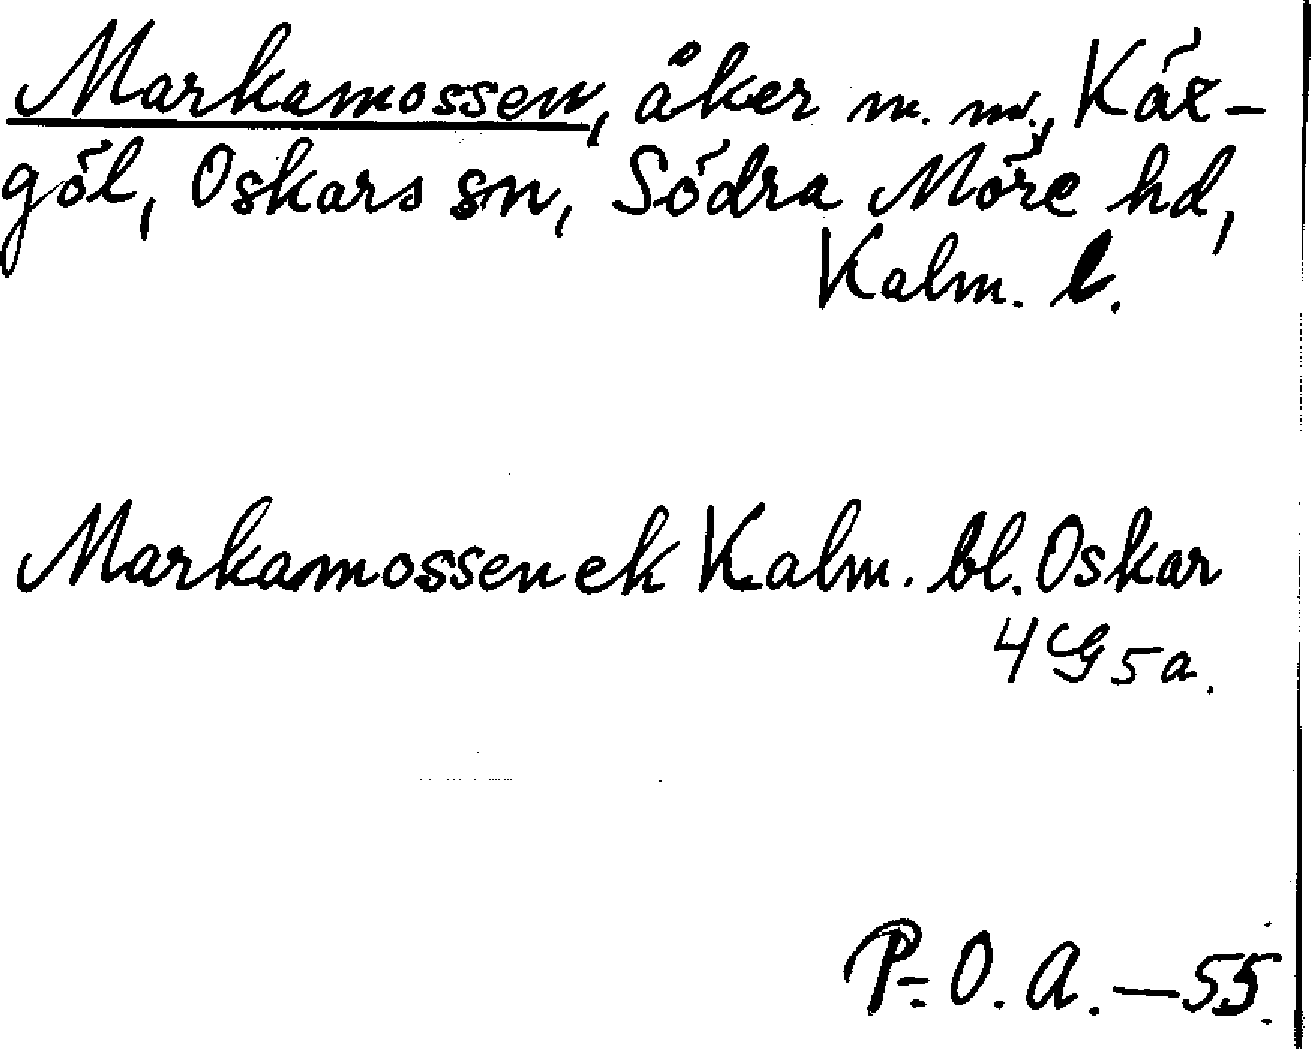 Markamossen, åker m. m., Kär-
göl, Oskars sn, Södra Möre hd,
Kalm. l.
Markamossen ek Kalm. bl. Oskar
4G5a.
P.-O. A. — 55.